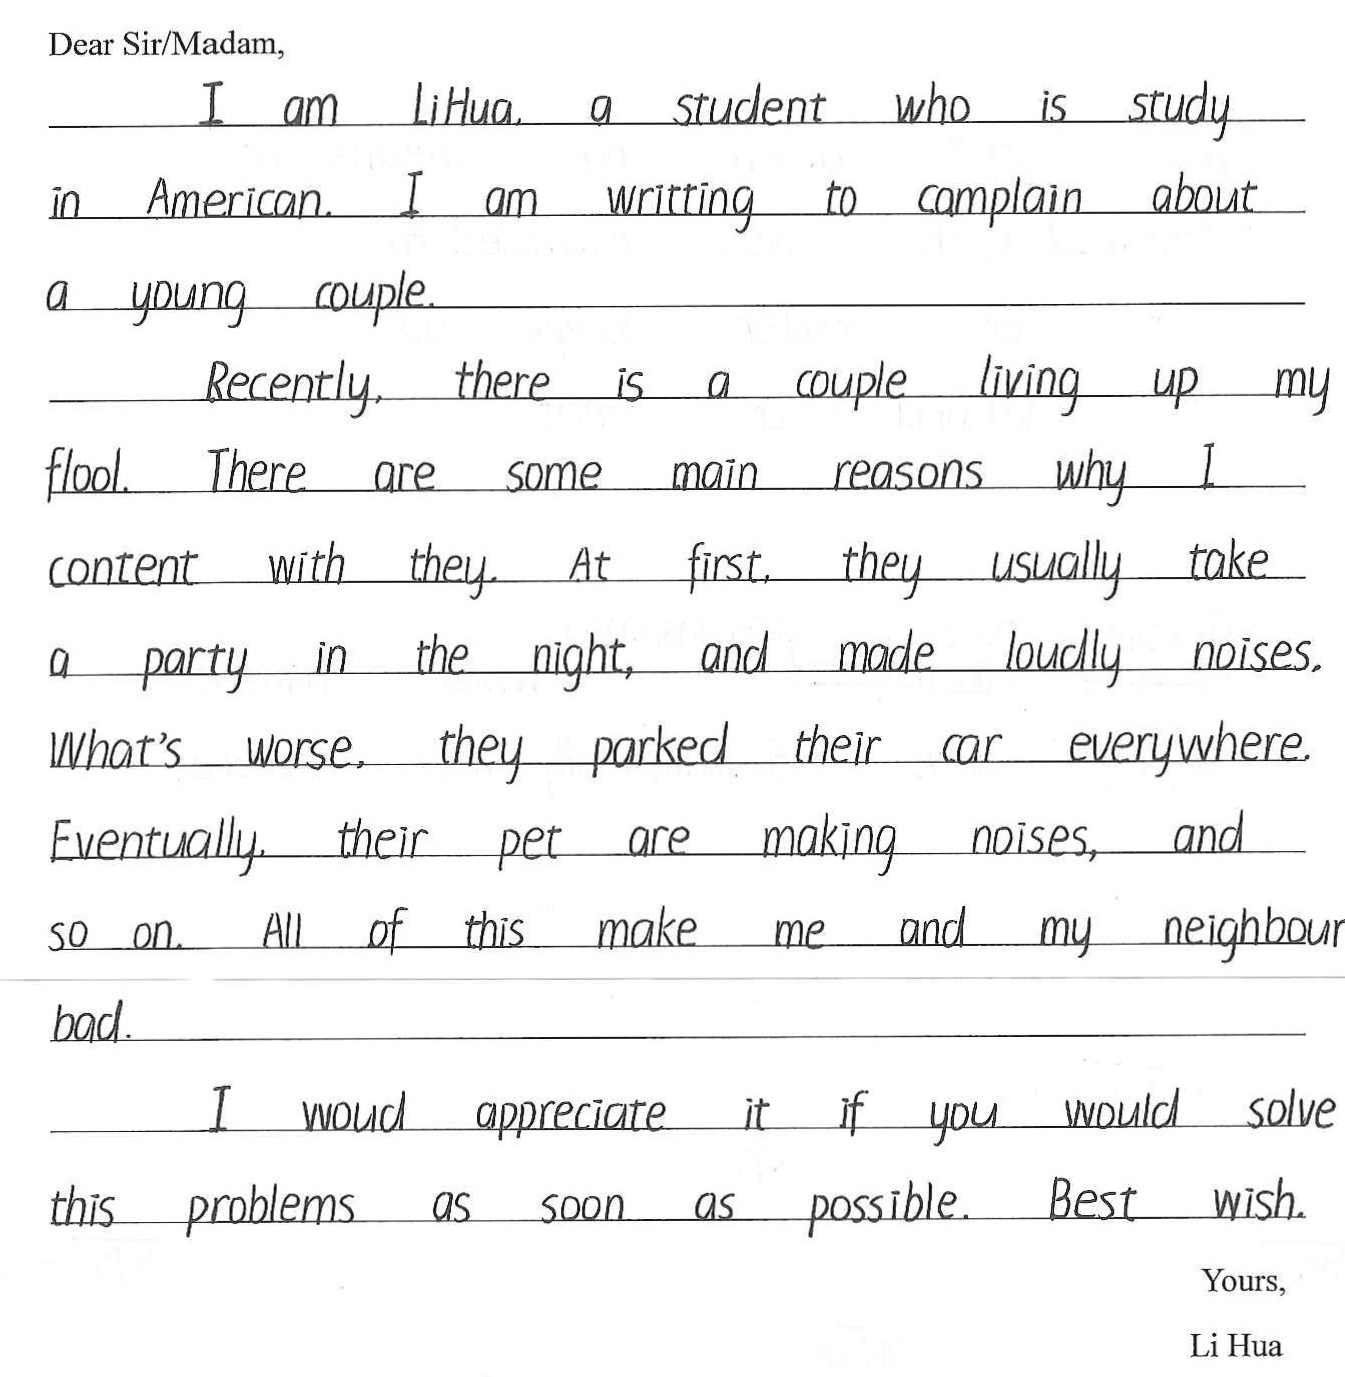 Dear Sir/Madam,
I am LiHua, a student who is study
in American. I am writting to complain about
a young couple.
Recently, there is a couple living up my
flool. There are some main reasons why I
content with they. At first, they usually take
a party in the night, and made loudly noises.
What's worse, they parked their car everywhere.
Eventually, their pet are making noises, and
so on. All of this make me and my neighbour
bad.
I woud appreciate it if you would solve
this problems as soon as possible. Best wish.
Yours,
Li Hua